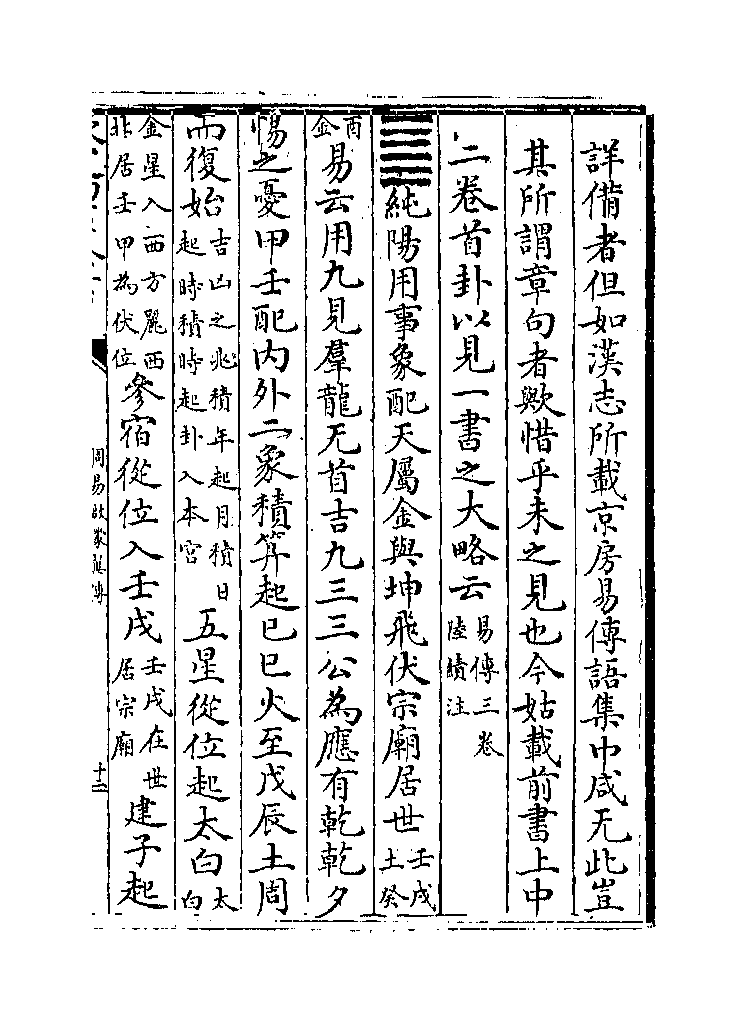 詳備者但如漢志所載京房易傳語集中咸无此豈
其所謂章句者歟惜乎未之見也今姑載前書上中
二卷首卦以見一書之大略云易傳三卷陸績注
䷀純陽用事象配天屬金與坤飛伏宗廟居世壬戌土癸
酉金易云用九見羣龍无首吉九三三公為應有乾乾夕
惕之憂甲壬配内外二象積算起巳巳火至戊辰土周
而復始吉凶之兆積年起月積日起時積時起卦入本宮五星從位起太白太白
金星入西方麗西北居壬甲為伏位參宿從位入壬戌壬戌在世居宗廟建子起
周易啟蒙翼傳
十二